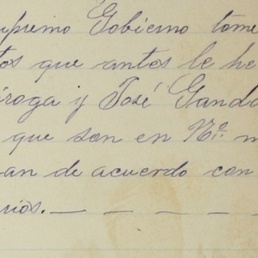 upremo Gobierno tome
tos que antes le he
iroga y José Ganda
que son en Nº. m
an de acuerdo con
rios. — — — — —